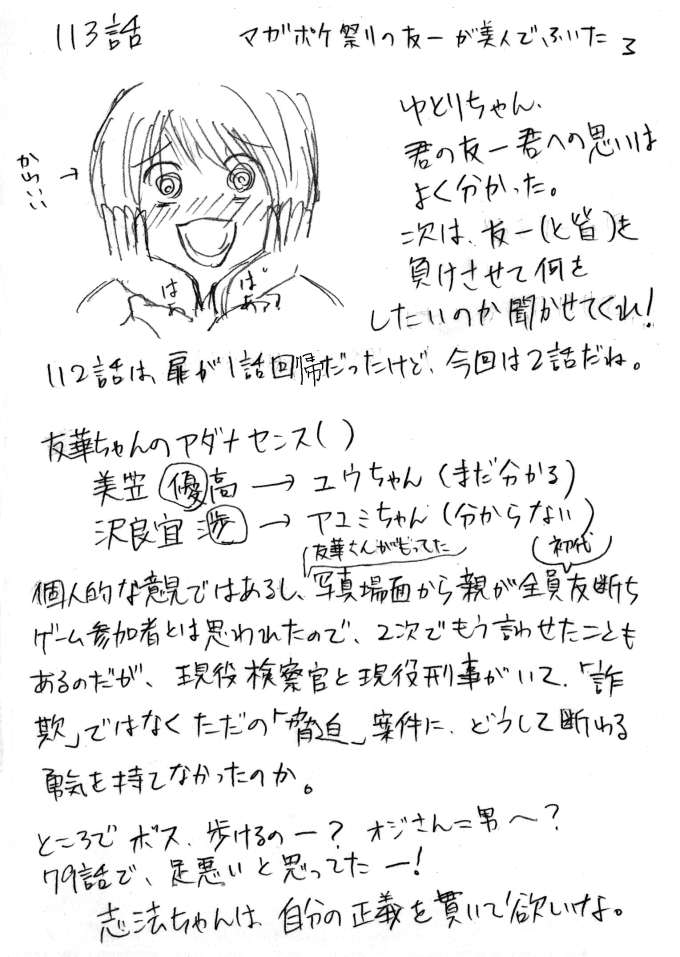 113話
マガポケ祭りの友一が美人でふいた 3
かわいい →
ゆとりちゃん、
君の友一君への思いは
よく分かった。
次は、友一(と皆)を
負けさせて何を
したいのか聞かせてくれ!
はぁ
ぱあっ?
112話は、扉が1話回帰だったけど、今回は2話だね。
友華ちゃんのアダナセンス( )
美笠 優高 → ユウちゃん (まだ分かる)
沢良宜 渉 → アユミちゃん (分からない)
友華さんがもってた
初代
個人的な意見ではあるし、写真場面から親が全員友断ち
ゲーム参加者とは思われたので、2次でもう言わせたことも
あるのだが、現役検察官と現役刑事がいて、「詐
欺」ではなくただの「脅迫」案件に、どうして断わる
勇気を持てなかったのか。
ところでボス、歩けるのー? オジさん=男へ?
79話で、足悪いと思ってたー!
志法ちゃんは、自分の正義を貫いて欲しいけな。